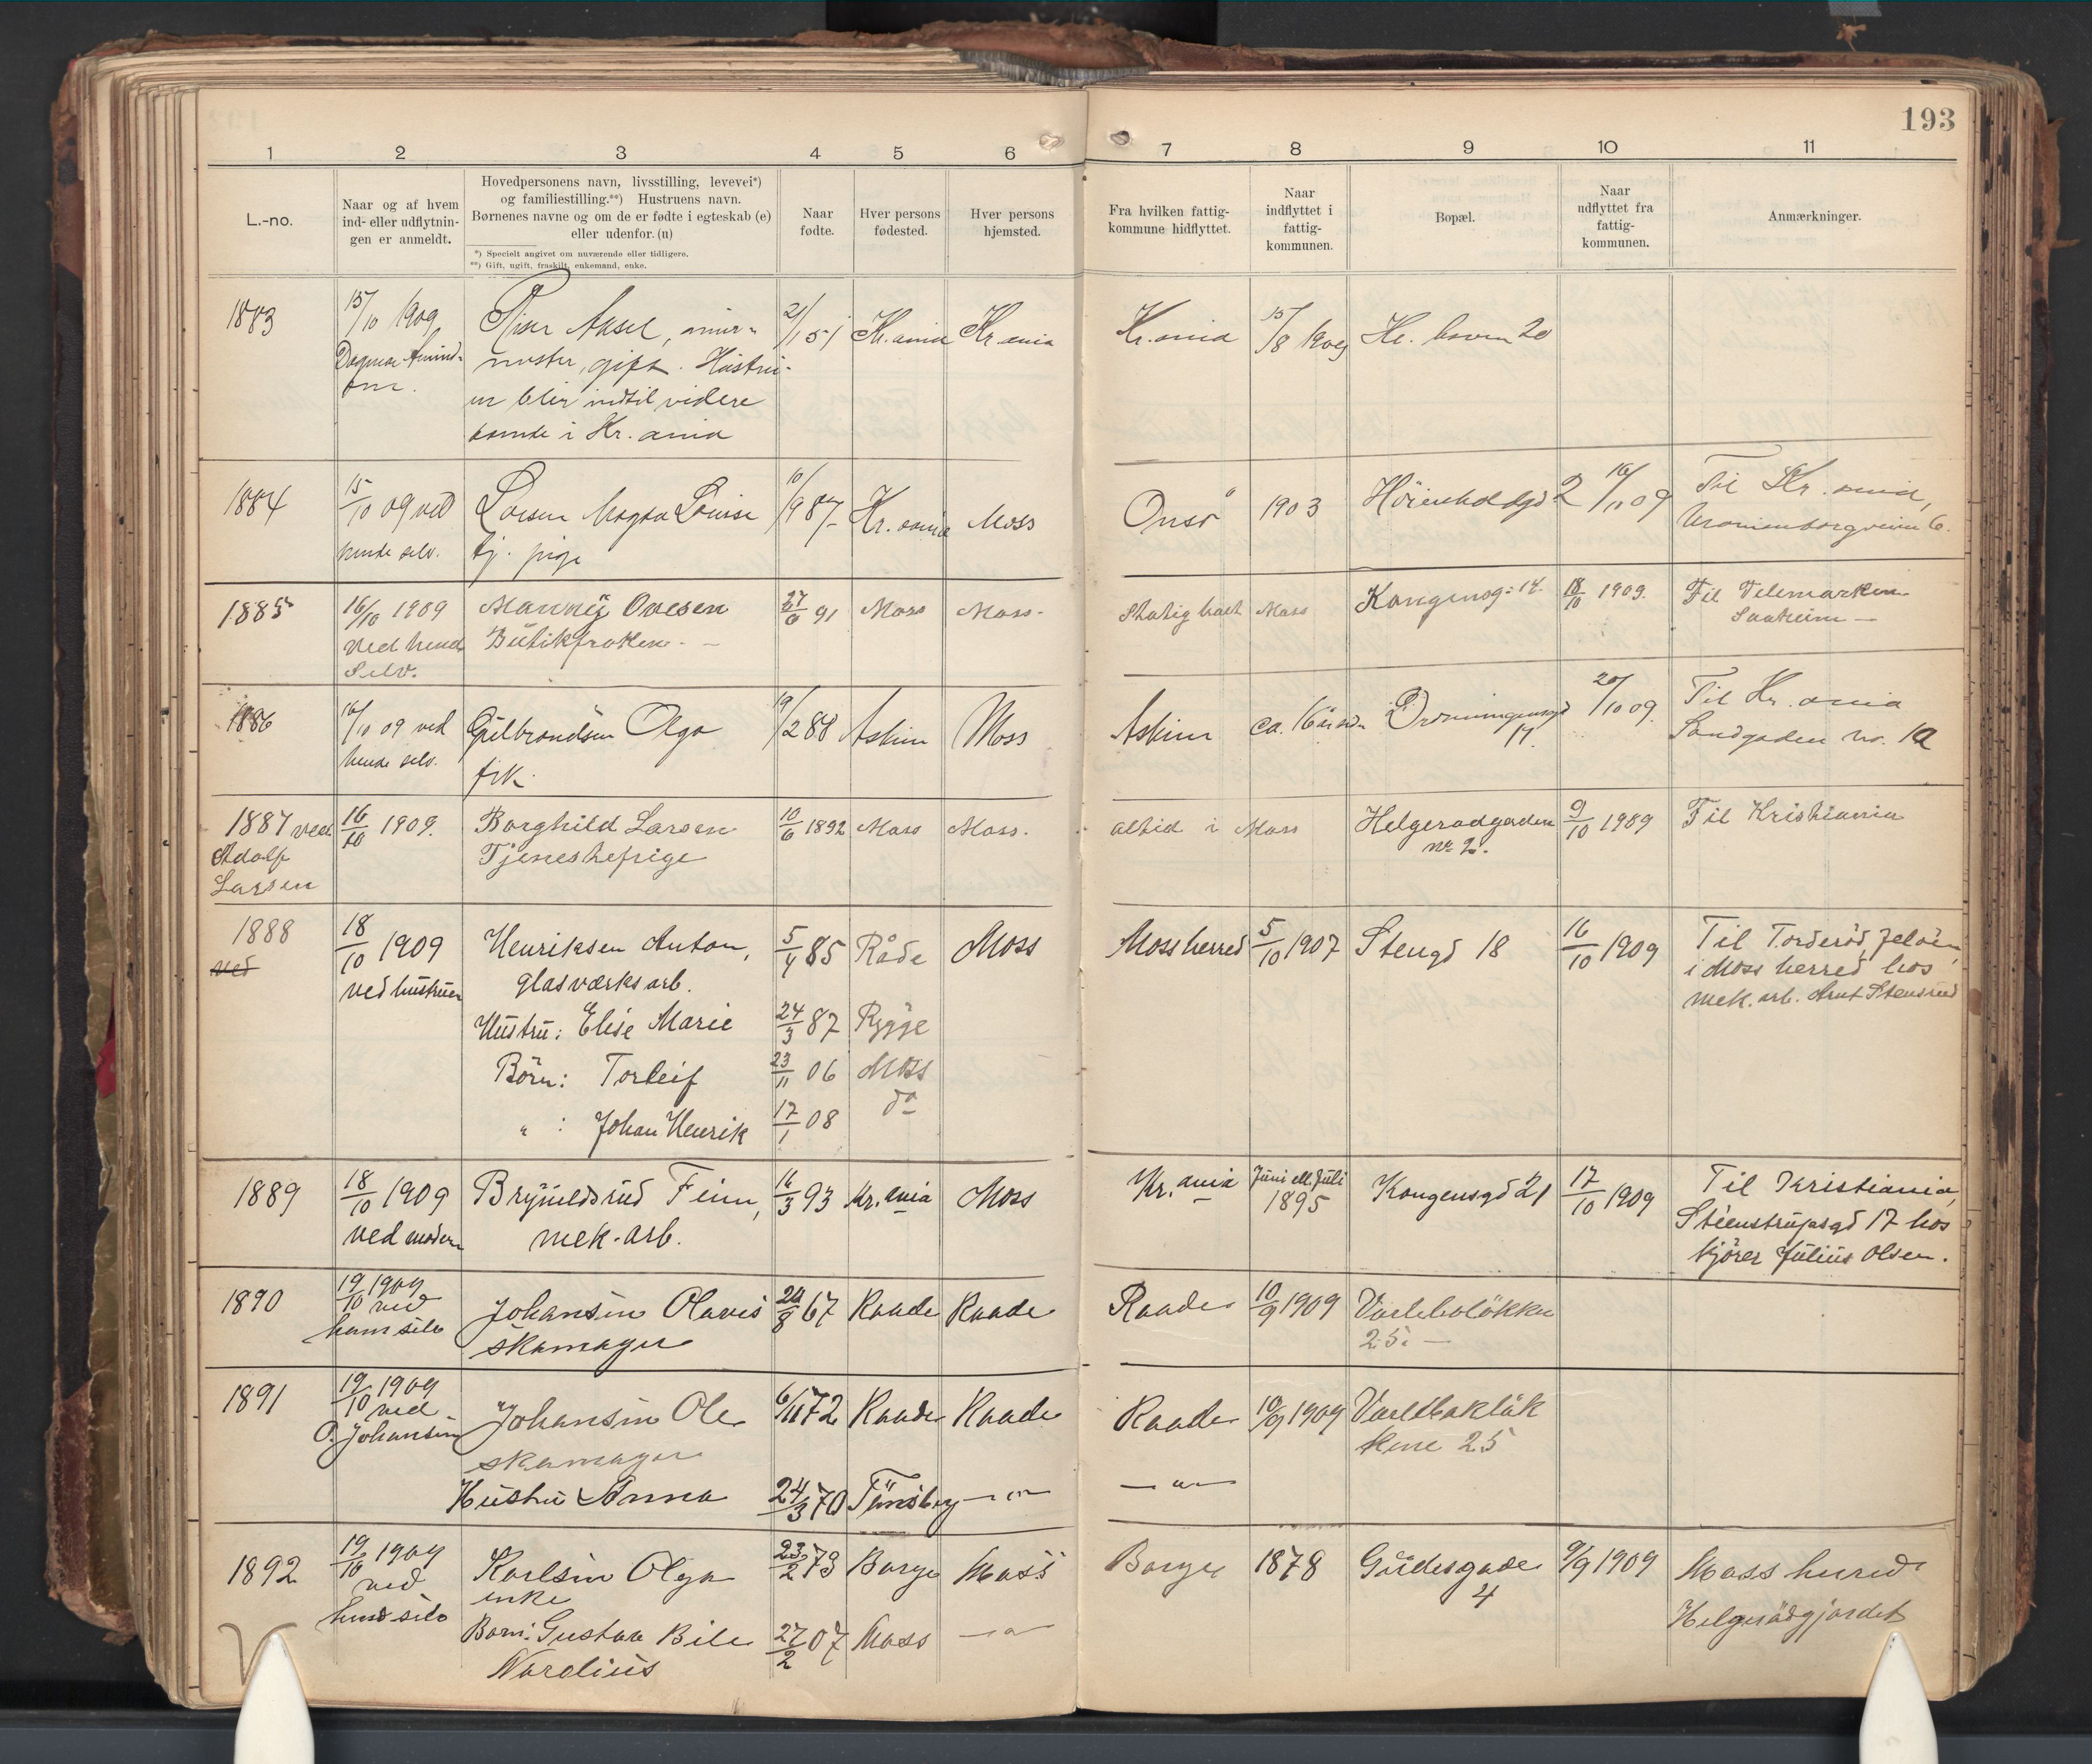 193
1 2 3 4 5 6 7 8 9 10 11
L.-no.
Naar og af hvem
ind- eller udflytnin-
gen er anmeldt.
Hovedpersonens navn, livsstilling, levevei*)
og familiestilling.**) Hustruens navn.
Børnenes navne og om de er fødte i egteskab (e)
eller udenfor. (u)
*) Specielt angivet om nuværende eller tidligere.
**) Gift, ugift, fraskilt, enkemand, enke.
Naar
fødte.
Hver persons
fødested.
Hver persons
hjemsted.
Fra hvilken fattig-
kommune hidflyttet.
Naar
indflyttet i
fattig-
kommunen.
Bopæl.
Naar
udflyttet fra
fattig-
kommunen.
Anmærkninger.
1883 15/10 1909 Aksel, mur- 21/1 51 Kr.ania Kr.ania Kr.ania 15/8 1909 20
Dagmar
mester, gift. Hustru-
en blir indtil videre
boende i Kr.ania
1884 15/10 09 ved Magda Louise 10/9 87 Kr.ania Moss Onsø 1903 2 16/11 09 Til Kr.ania,
hende selv. tj. pige 6.
1885 16/10 1909 Ovesen 27/6 91 Moss Moss. Moss Kongensg: 14. 18/10 1909. Til Telemarken
ved hende Butikfrøken Saaheim
Selv.
1886 16/10 09 ved Gulbrandsen Olga 19/2 88 Askim Moss Askim ca. 16 Dronningensgd 20/10 09. Til Kr.ania
hende selv. frk. 17. Sandgaden no. 12
1887 ved 16/10 1909. Borghild Larsen 10/6 1892 Moss Moss. altid i Moss Helgerødgaden 9/10 1909 Til Kristiania
Adolf Tjenestepige nr 2.
Larsen
1888 18/10 1909 Henriksen Anton, 5/4 85 Råde Moss Moss herred 5/10 1907 Stengd 18 16/10 1909 Til Torderød, Jeløen
ved ved hustruen glasværksarb. i Moss herred hos
Hustru: Elise Marie 24/3 87 Rygge mek. arb. Arnt Stensrud
Børn: Torleif 23/11 06 Moss
" : Johan Henrik 17/1 08 do
1889 18/10 1909 Brynildsrud Finn, 16/3 93 Kr.ania Moss Kr.ania Juni ell. Juli Kongensgd 21 17/10 1909 Til Kristiania,
ved moderen mek. arb. 1895 Steenstrupsgd 17 hos
kjører Julius Olsen.
1890 19/10 1909 ved Johansen Olavis 24/8 67 Raade Raade Raade 10/9 1909 Varleboløkke
ham selv skomager 25.
1891 19/10 1909 ved Johansen Ole 6/11 72 Raade Raade Raade 10/9 1909
O. Johansen skomager kene 25
Hustru Anna 24/3 70 Tønsberg — " — — " —
1892 19/10 1909 Karlsen Olga 23/2 73 Borge Moss Borge 1878 Gudesgade 9/9 1909 Moss herred
ved enke 4
hende selv Barn: Gustav 27/2 07 Moss — " — Helgerødgjordet
Nardius